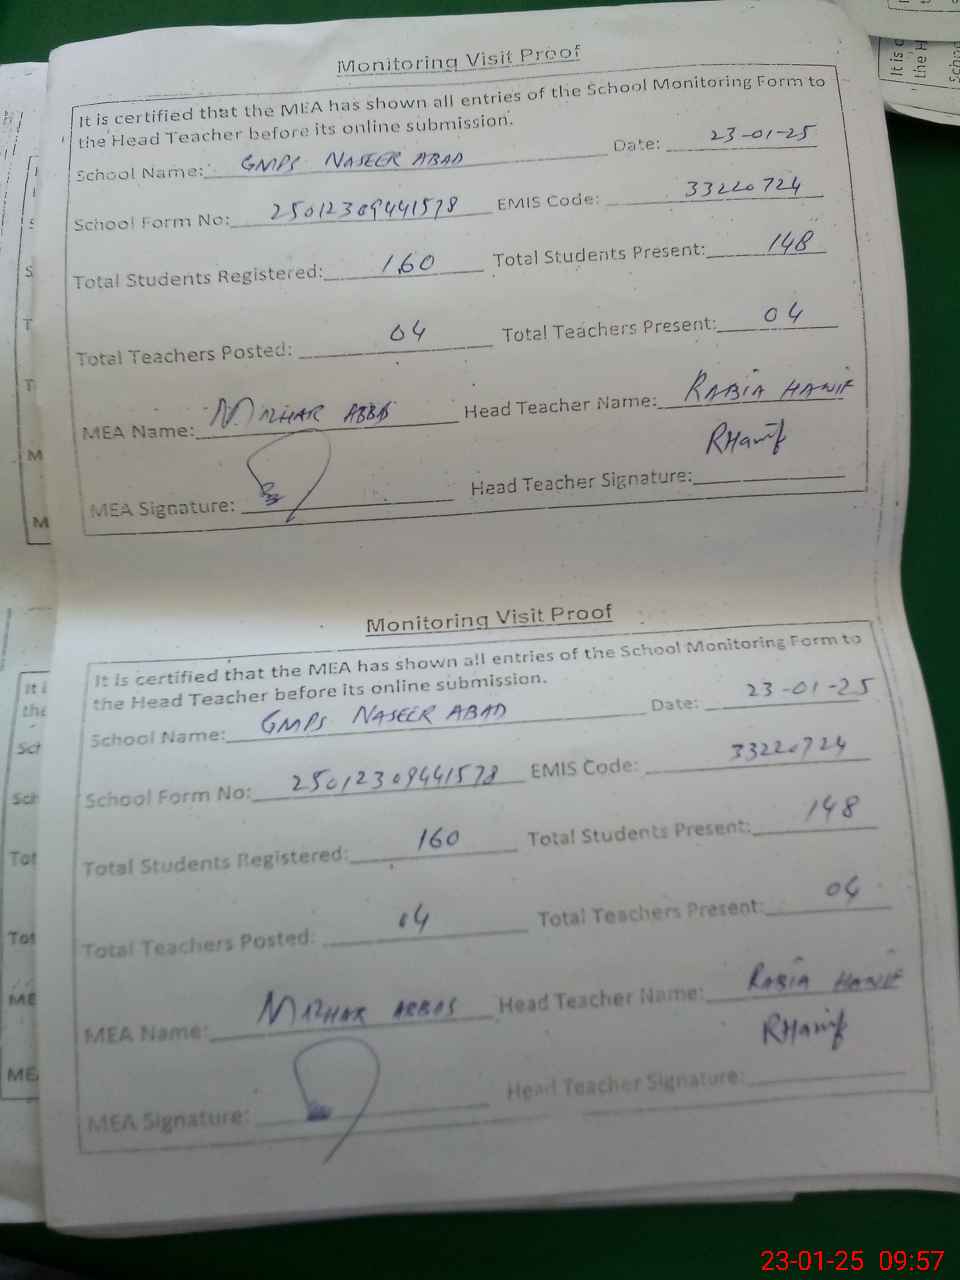 Monitoring Visit Proof
It is certified that the MEA has shown all entries of the School Monitoring Form to
the Head Teacher before its online submission.
School Name: GMPS NASEER ABAD Date: 23-01-25
School Form No: 25012309441578 EMIS Code: 33220724
Total Students Registered: 160 Total Students Present: 148
Total Teachers Posted: 04 Total Teachers Present: 04
MEA Name: ABBAS Head Teacher Name: RABIA HANIF
RHanif
MEA Signature: Head Teacher Signature:
Monitoring Visit Proof
It is certified that the MEA has shown all entries of the School Monitoring Form to
the Head Teacher before its online submission.
School Name: GMPS NASEER ABAD Date: 23-01-25
School Form No: 25012309441578 EMIS Code: 33220724
Total Students Registered: 160 Total Students Present: 148
Total Teachers Posted: 04 Total Teachers Present: 04
MEA Name: ABBAS Head Teacher Name: RABIA HANIF
RHanif
MEA Signature: Head Teacher Signature:
23-01-25 09:57